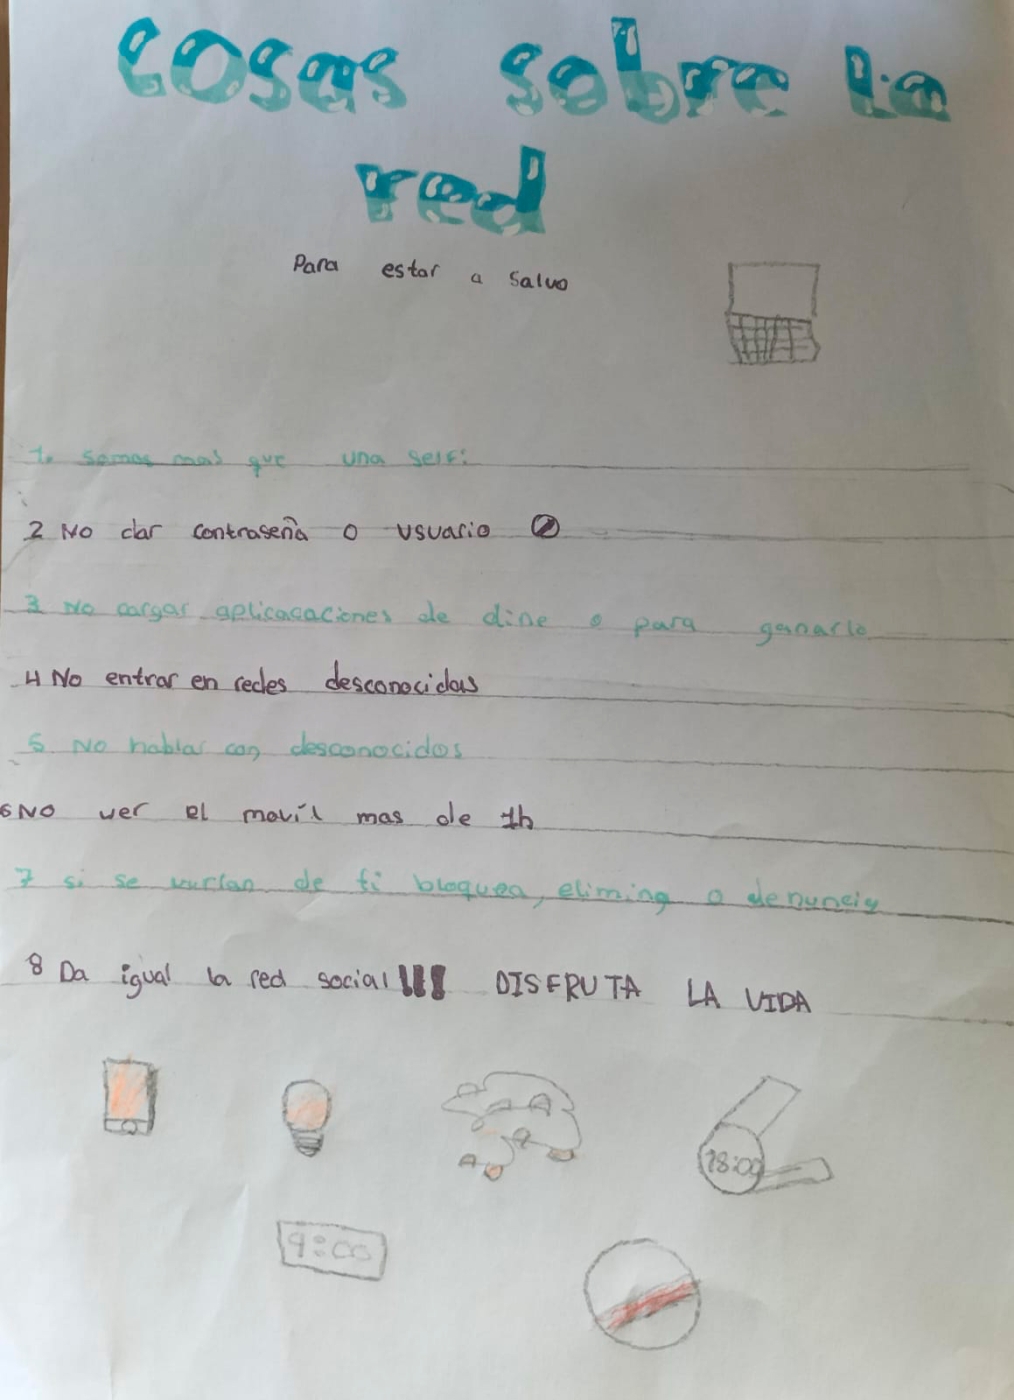 cosas sobre la
red
Para estar a salvo
1. somos mas que una selfi
2 No dar contraseña o usuario
3 No cargar aplicacaciones de dine o para ganarlo
4 No entrar en redes desconocidas
5. No hablar con desconocidos
6 No ver el movíl mas de 1h
7 si se vurlan de ti bloquea, elimina o denuncia
8 Da igual la red social!!! DISFRUTA LA VIDA
18:00
9:00